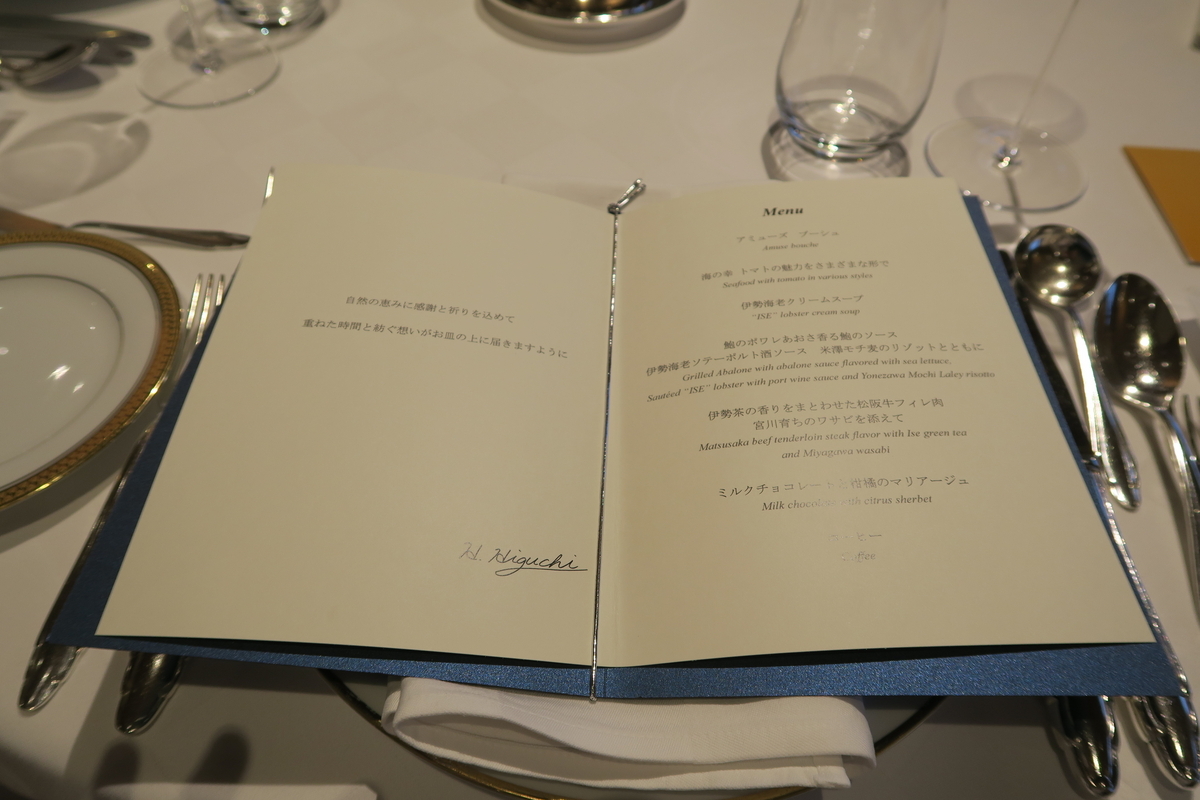 自然の恵みに感謝と祈りを込めて
重ねた時間と紡ぐ想いがお皿の上に届きますように
H. Higuchi
Menu
アミューズ ブーシュ
Amuse bouche
海の幸 トマトの魅力をさまざまな形で
Seafood with tomato in various styles
伊勢海老クリームスープ
"ISE" lobster cream soup
鮑のポワレあおさ香る鮑のソース
伊勢海老ソテーポルト酒ソース 米澤モチ麦のリゾットとともに
Grilled Abalone with abalone sauce flavored with sea lettuce,
Sautéed "ISE" lobster with port wine sauce and Yonezawa Mochi Laley risotto
伊勢茶の香りをまとわせた松阪牛フィレ肉
宮川育ちのワサビを添えて
Matsusaka beef tenderloin steak flavor with Ise green tea
and Miyagawa wasabi
ミルクチョコレートと柑橘のマリアージュ
Milk chocolate with citrus sherbet
コーヒー
Coffee